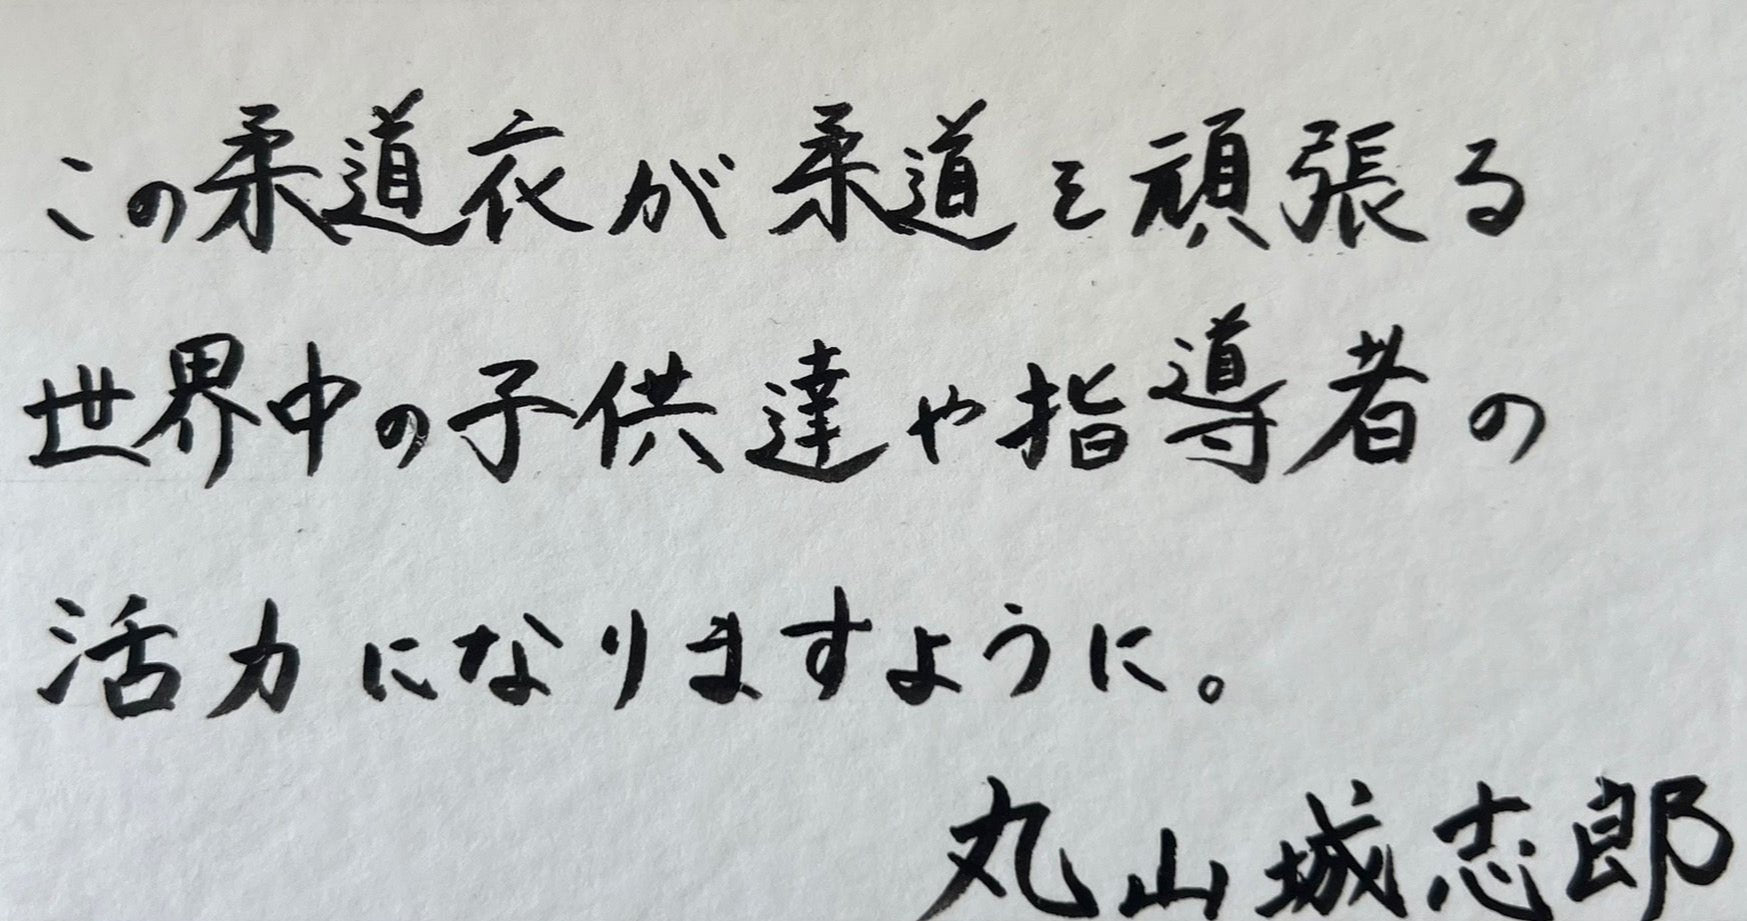 この柔道衣が柔道を頑張る
世界中の子供達や指導者の
活力になりますように。
丸山城志郎